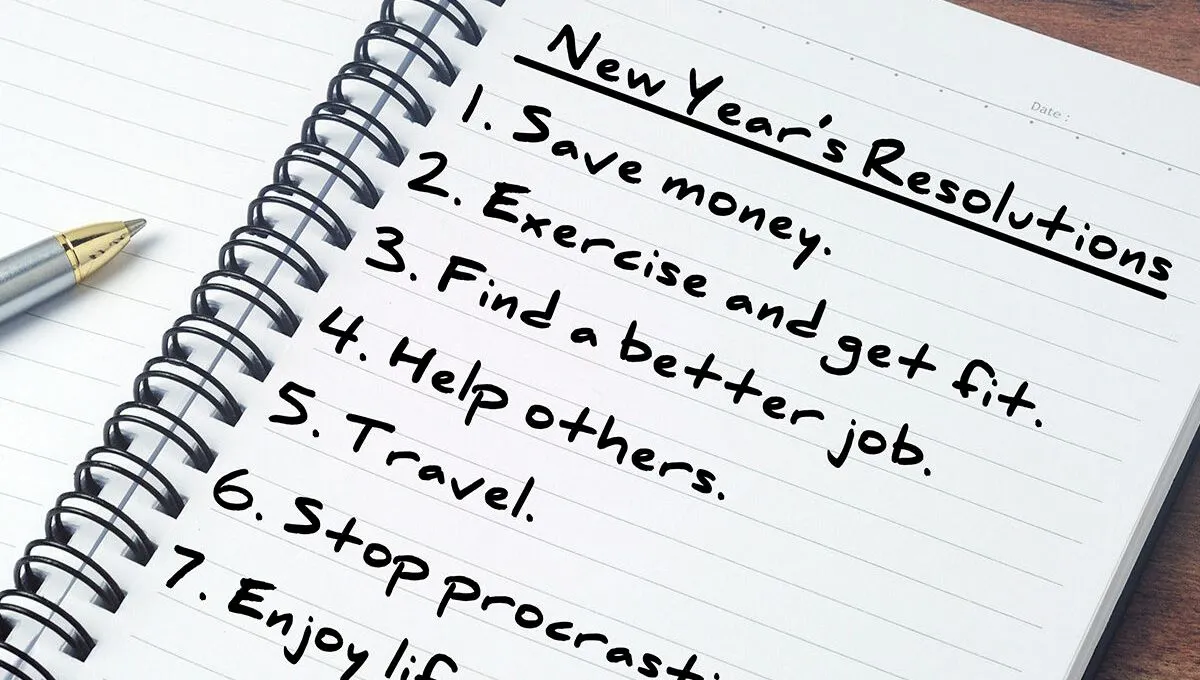 Date:
New Year's Resolutions
1. Save money.
2. Exercise and get fit.
3. Find a better job.
4. Help others.
5. Travel.
6. Stop procrasti
7. Enjoy lif